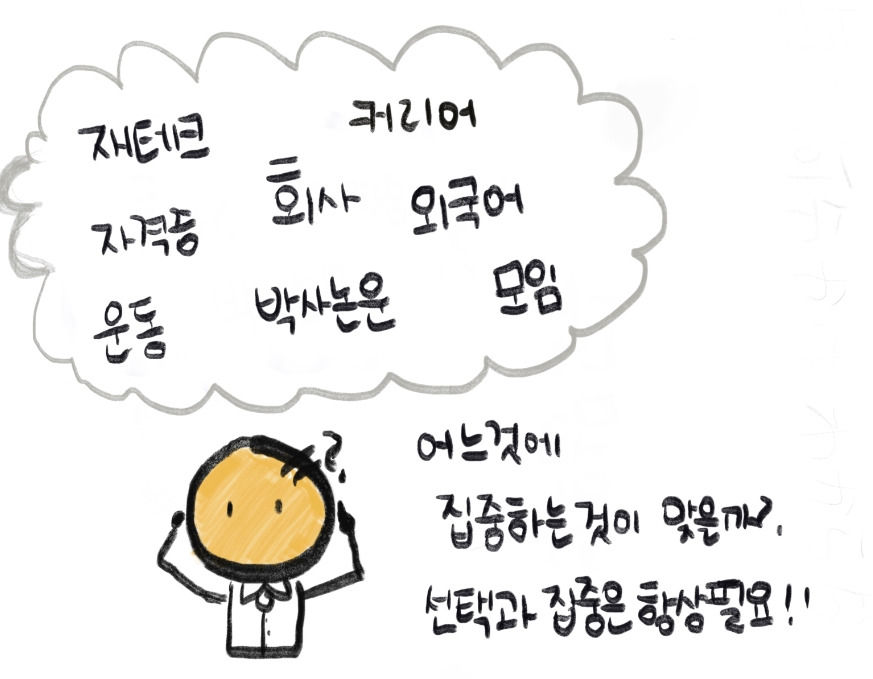 재테크 커리어
자격증 회사 외국어
운동 박사논문 모임
?
어느것에
집중하는것이 맞을까?
선택과 집중은 항상필요!!